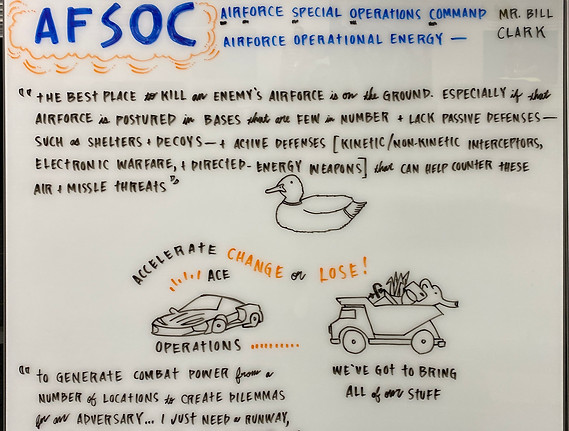 AFSOC
AIRFORCE SPECIAL OPERATIONS COMMAND
MR. BILL
CLARK
AIRFORCE OPERATIONAL ENERGY —
"THE BEST PLACE to KILL an ENEMY'S AIRFORCE is on the GROUND. ESPECIALLY if that
AIRFORCE is POSTURED in BASES that are FEW in NUMBER + LACK PASSIVE DEFENSES—
SUCH as SHELTERS + DECOYS— + ACTIVE DEFENSES [KINETIC/NON-KINETIC INTERCEPTORS,
ELECTRONIC WARFARE, + DIRECTED-ENERGY WEAPONS] that CAN HELP COUNTER THESE
AIR + MISSLE THREATS"
ACCELERATE CHANGE or LOSE!
ACE
OPERATIONS
WE'VE GOT to BRING
ALL of our STUFF
"to GENERATE COMBAT POWER from a
NUMBER of LOCATIONS to CREATE DILEMMAS
for an ADVERSARY... I JUST NEED a RUNWAY,